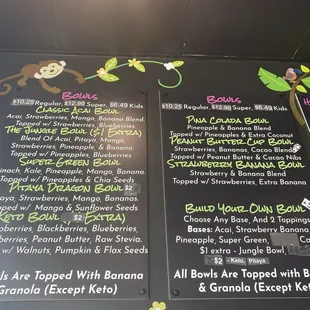 Bowls
$10.25 Regular, $12.99 Super, $6.49 Kids
Classic Acai Bowl
Acai, Strawberries, Mango, Banana Blend
Topped w/ Strawberries, Blueberries
The Jungle Bowl ($1 Extra)
Blend Of Acai, Pitaya, Mango, Banana
Topped w/ Strawberries, Mango
Super Green Bowl
Kale, Pineapple, Mango, Banana
Topped w/ Pineapples & Chia Seeds
Pitaya Dragon Bowl $2
Strawberries, Mango, Banana
w/ Mango & Sunflower Seeds
Keto Bowl $2 Extra)
Blackberries, Blueberries,
Peanut Butter, Raw Stevia.
w/ Walnuts, Pumpkin & Flax Seeds
Are Topped With Banana
Granola (Except Keto)
Bowls
$10.25 Regular, $12.99 Super, $6.49 Kids
Pina Colada Bowl
Pineapple & Banana Blend
Topped w/ Pineapples & Extra Coconut
Peanut Butter Cup Bowl
Strawberries, Bananas, Cacao Blend
Topped w/ Peanut Butter & Cacao Nibs
Strawberry Banana Bowl
Strawberry & Banana Blend
Topped w/ Strawberries, Extra Banana
Build Your Own Bowl
Choose Any Base, And 2 Toppings
Bases: Acai, Strawberry Banana
Pineapple, Super Green,
$1 extra - Jungle Bowl,
$2 -Keto, Pitaya
All Bowls are Topped with
& Granola (Except Keto)